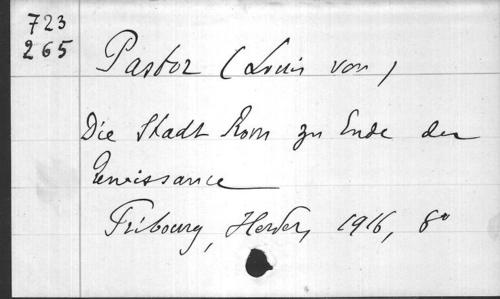 723
265
Pastor (Louis von)
Die Stadt Rom zu Ende der
Renaissance
Fribourg, Herder, 1916, 8°